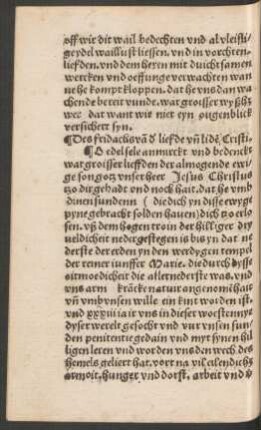 off wir dit wail bedechten vnd al vleisli-
geydel waillust liessen. vnd in vorchten.
liefden. vnd dem heren mit duicht samen
wercken vnd oeffunge verwachten wan
ne he kompt kloppen. dat he vns dan wa
chende bereit vunde. wat groisser wyßhz
wer dat want wir niet eyn ougenblick
versichert syn.
¶ Des fridachs vā d' liefde vn̄ lidē, Cristi.
¶ O edel sele anmirck vnd bedenck
wat groisser lieffden der almogende ewi
ge son gotz vnser heer Jesus Christus
tzo dir gehadt vnd noch hait. dat he vmb
dinen sunden n ( die dich yn disse ewyge
pyne gebracht solden hauen) dich tzo erlo
sen. vß dem hogen troin der hilliger dry
ueldicheit neder gestegen is bis yn dat ne
derste der erden yn den werdygen tempel
der reiner iunffer Marie. die durch dysse
oitmoedicheit die aller nederste was. vnd
vns arm krācke natuir angenomē hais
vn̄ vmb vnsen wille ein kint worden ist.
vnd xxxiii iair vns in dieser woestennys
dyser werelt gesocht vnd vur vnsen sun/
den penitentie gedain vnd myt synen hil
ligen leren vnd worden vns den wech des
hemels geliert hat. vort na vil eilendichs
armoit. hunger vnd dorst. arbeit vnd v